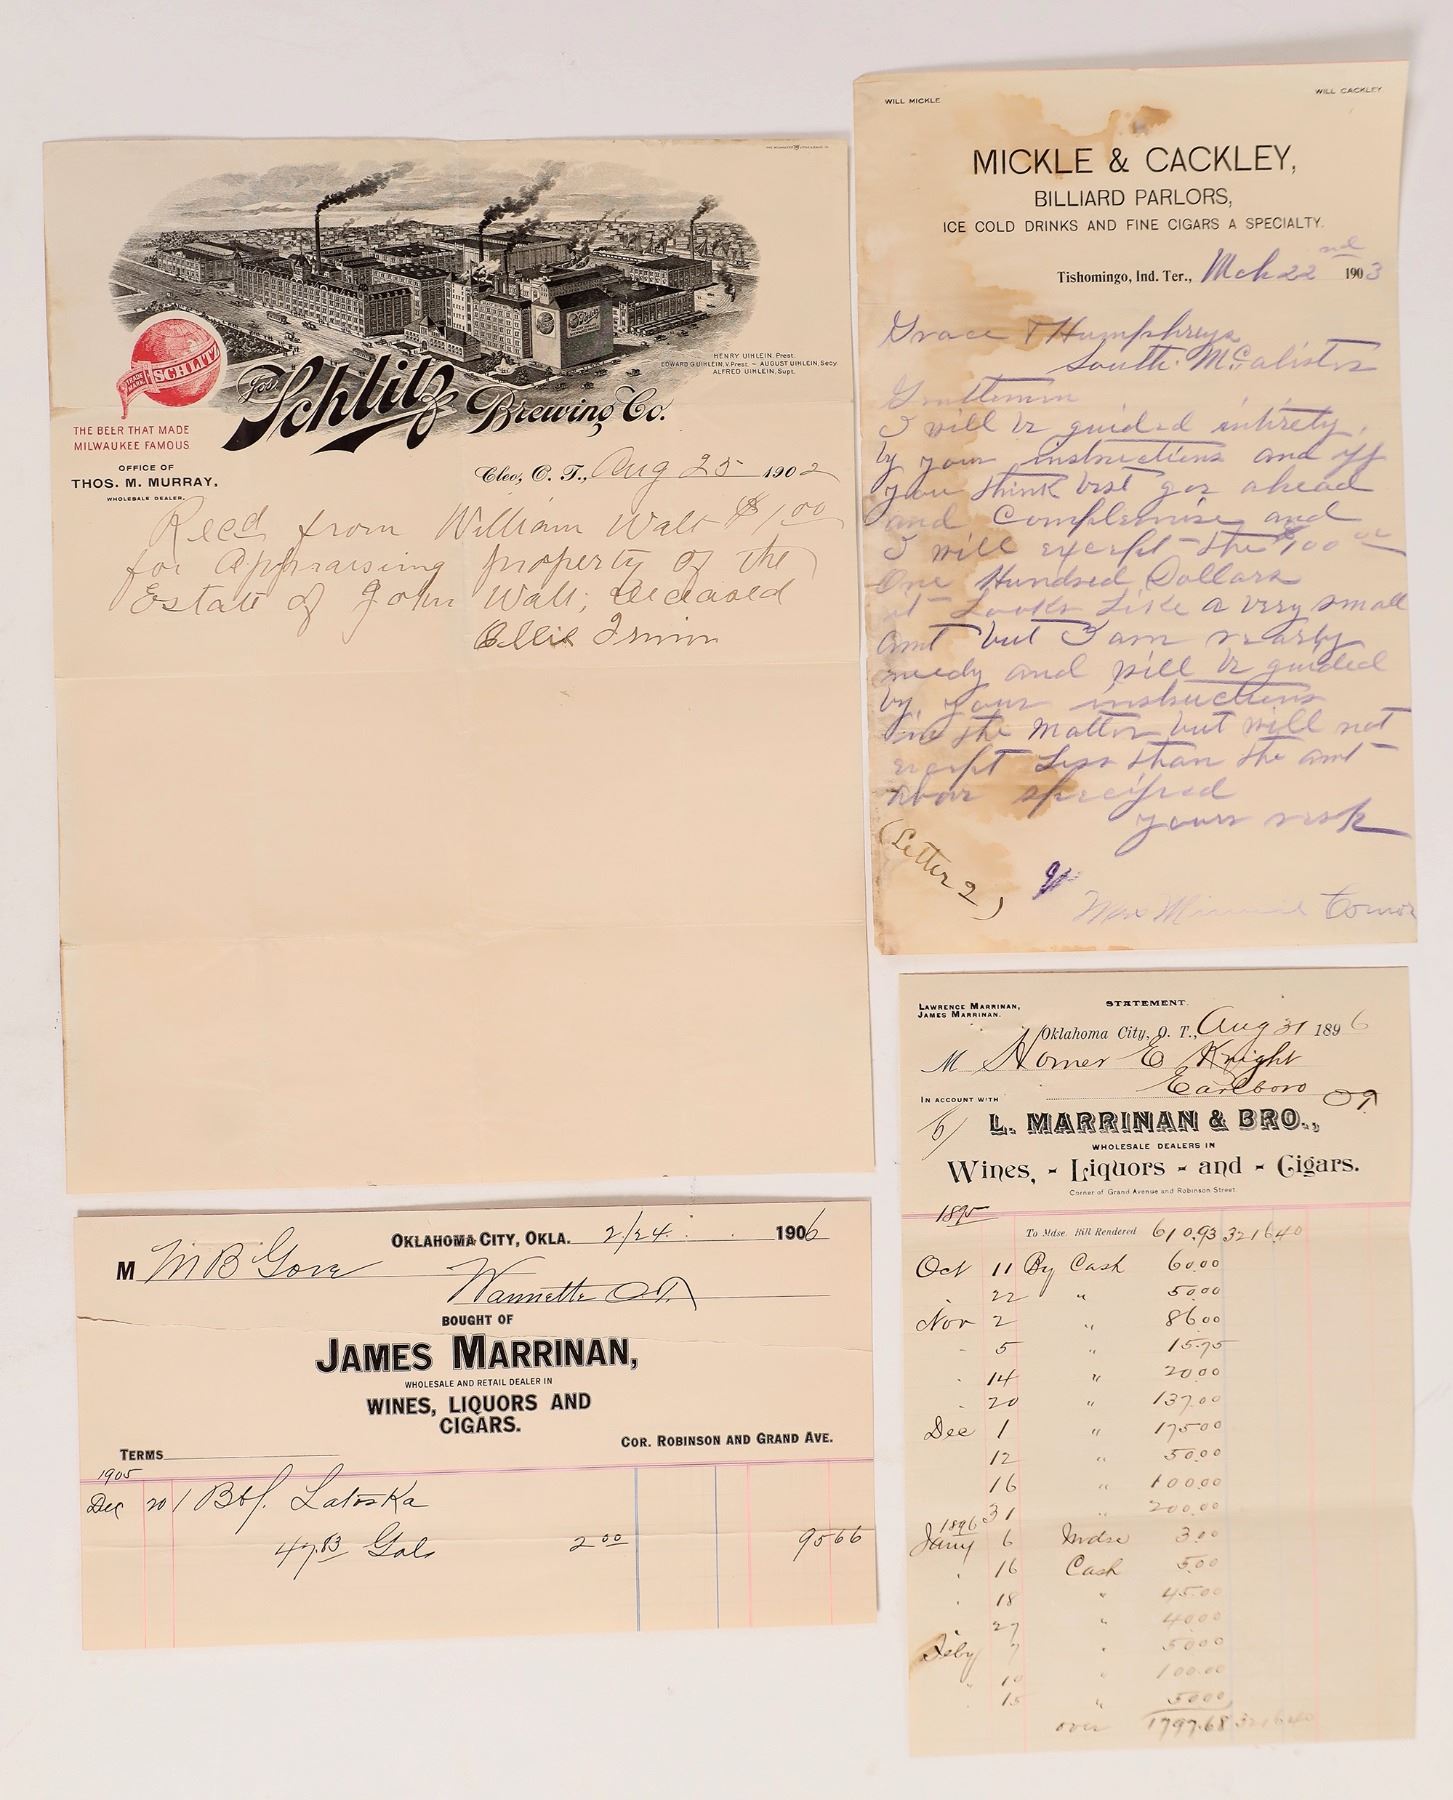 SCHLITZ
TRADE MARK
THE BEER THAT MADE
MILWAUKEE FAMOUS
Jos. Schlitz Brewing Co.
HENRY UIHLEIN, Prest.
EDWARD G. UIHLEIN, V. Prest. - AUGUST UIHLEIN, Secy.
ALFRED UIHLEIN, Supt.
OFFICE OF
THOS. M. MURRAY,
WHOLESALE DEALER.
Cleo, O. T., Aug 25 1902
Recd from William Walt $1.00
for Appraising property of the
Estate of John Walt, deceased
Ellis Irwin
WILL MICKLE
WILL CACKLEY
MICKLE & CACKLEY,
BILLIARD PARLORS,
ICE COLD DRINKS AND FINE CIGARS A SPECIALTY.
Tishomingo, Ind. Ter., Mch 22nd 1903
Grace & Humphreys
South McAlister
Gentlemen
I will be guided intirety,
by your instructions and if
you think best gor ahead
and complemise and
I will except the $100 00
One Hundred Dollars
it Looks Like a very small
amt but I am nearly
needy and will be guided
by your instructions
in the matter but will not
except Less than the amt
above specified
yours resp
(Letter 2)
Mrs Minnie Comor
OKLAHOMA CITY, OKLA. 2/24 1906
M M B Gove
Wannette O.T.
BOUGHT OF
JAMES MARRINAN,
WHOLESALE AND RETAIL DEALER IN
WINES, LIQUORS AND
CIGARS.
TERMS
COR. ROBINSON AND GRAND AVE.
1905
Dec 20 1 Bbl. Latoska
47.83 Gals 2 00 95 66
LAWRENCE MARRINAN,
JAMES MARRINAN.
STATEMENT.
Oklahoma City, O. T., Aug 31 1896
M Homer E Knight
Earlboro OT
IN ACCOUNT WITH
L. MARRINAN & BRO.,
WHOLESALE DEALERS IN
Wines, - Liquors - and - Cigars.
Corner of Grand Avenue and Robinson Street.
1895
To Mdse. Bill Rendered 610.93 3216.40
Oct 11 By Cash 60.00
22 " 50.00
Nov 2 " 86.00
5 " 15.75
14 " 20.00
20 " 137.00
Dec 1 " 175.00
12 " 50.00
16 " 100.00
31 " 200.00
1896
Jany 6 Mdse 3.00
16 Cash 5.00
18 " 45.00
27 " 40.00
Feby 7 " 50.00
10 " 100.00
15 " 50.00
over 1797.68 3216.40